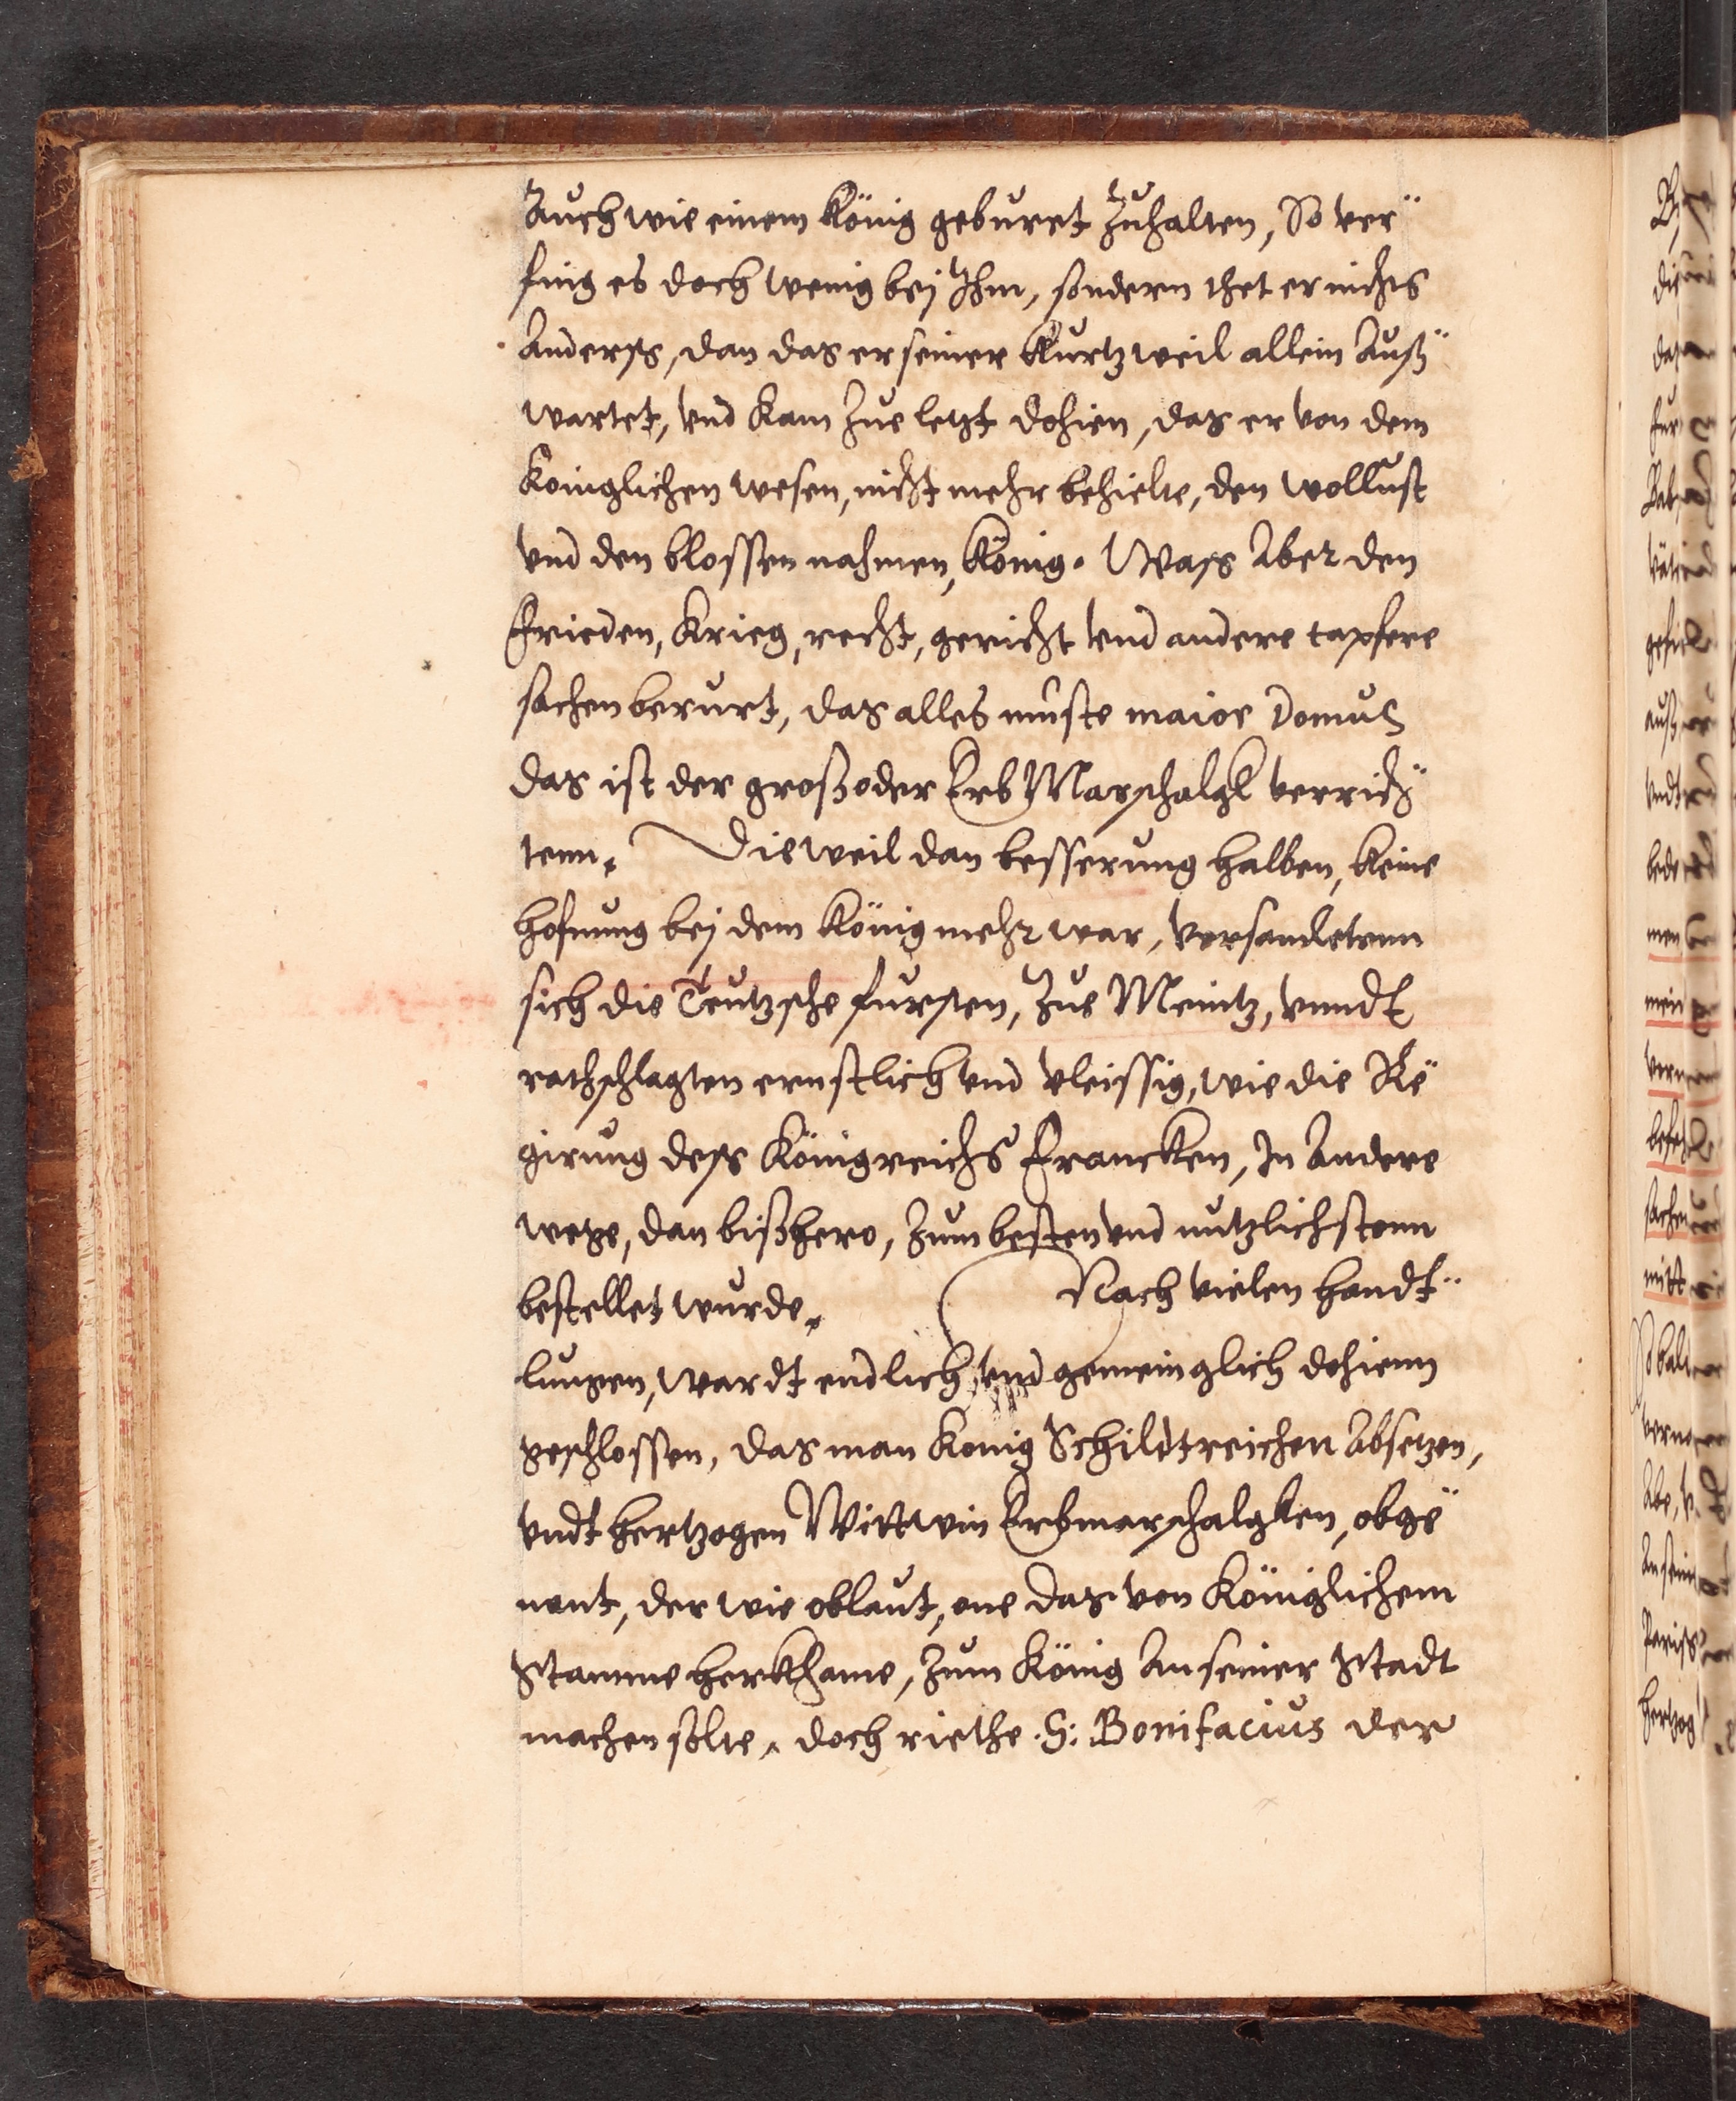 Auch wie einem König geburet Zuhalten, So ver¨
fing es doch wenig bej Ihm, sondern thet er nichts
Anderss, dan das er seiner Kurtzweil allein Auß¨
wartet, vnd Kam Zue letzt dohien, das er von dem
Koinglichen wesen, nicht mehr behielte, den wollust
vnd den blossen nahmen, König. Wass Aber den
Frieden, Krieg, recht, gericht vnd andere tapfere
sachen berurt, das alles muste maior Domus
das ist der groß oder Erb Marschalgk verrich¨
tenn. Dieweil dan besserung halben, keine
hofnung bej dem König mehr war, versamletenn
sich die Teutzsche fursten, Zue Meintz, vnndt
rathschlagten ernstlich vnd vleissig, wie die Re¨
girung dess Königreichs Francken, In Andere
wege, dan bißhero, Zum besten vnd nutzlichstenn
bestellet wurde. Nach vielen handt¨
lungen, wardt endlich vnd gemeinglich dohienn
geschlossen, das man Konig Schildtreichen Absetzen,
vndt hertzogen Wittwin Erbmarschalgken, obge¨
nant, der wie oblaut, one das von Königlichem
Stamme herkhame, Zum König An seiner Stadt
machen solte, doch riethe .S: Bonifacius der